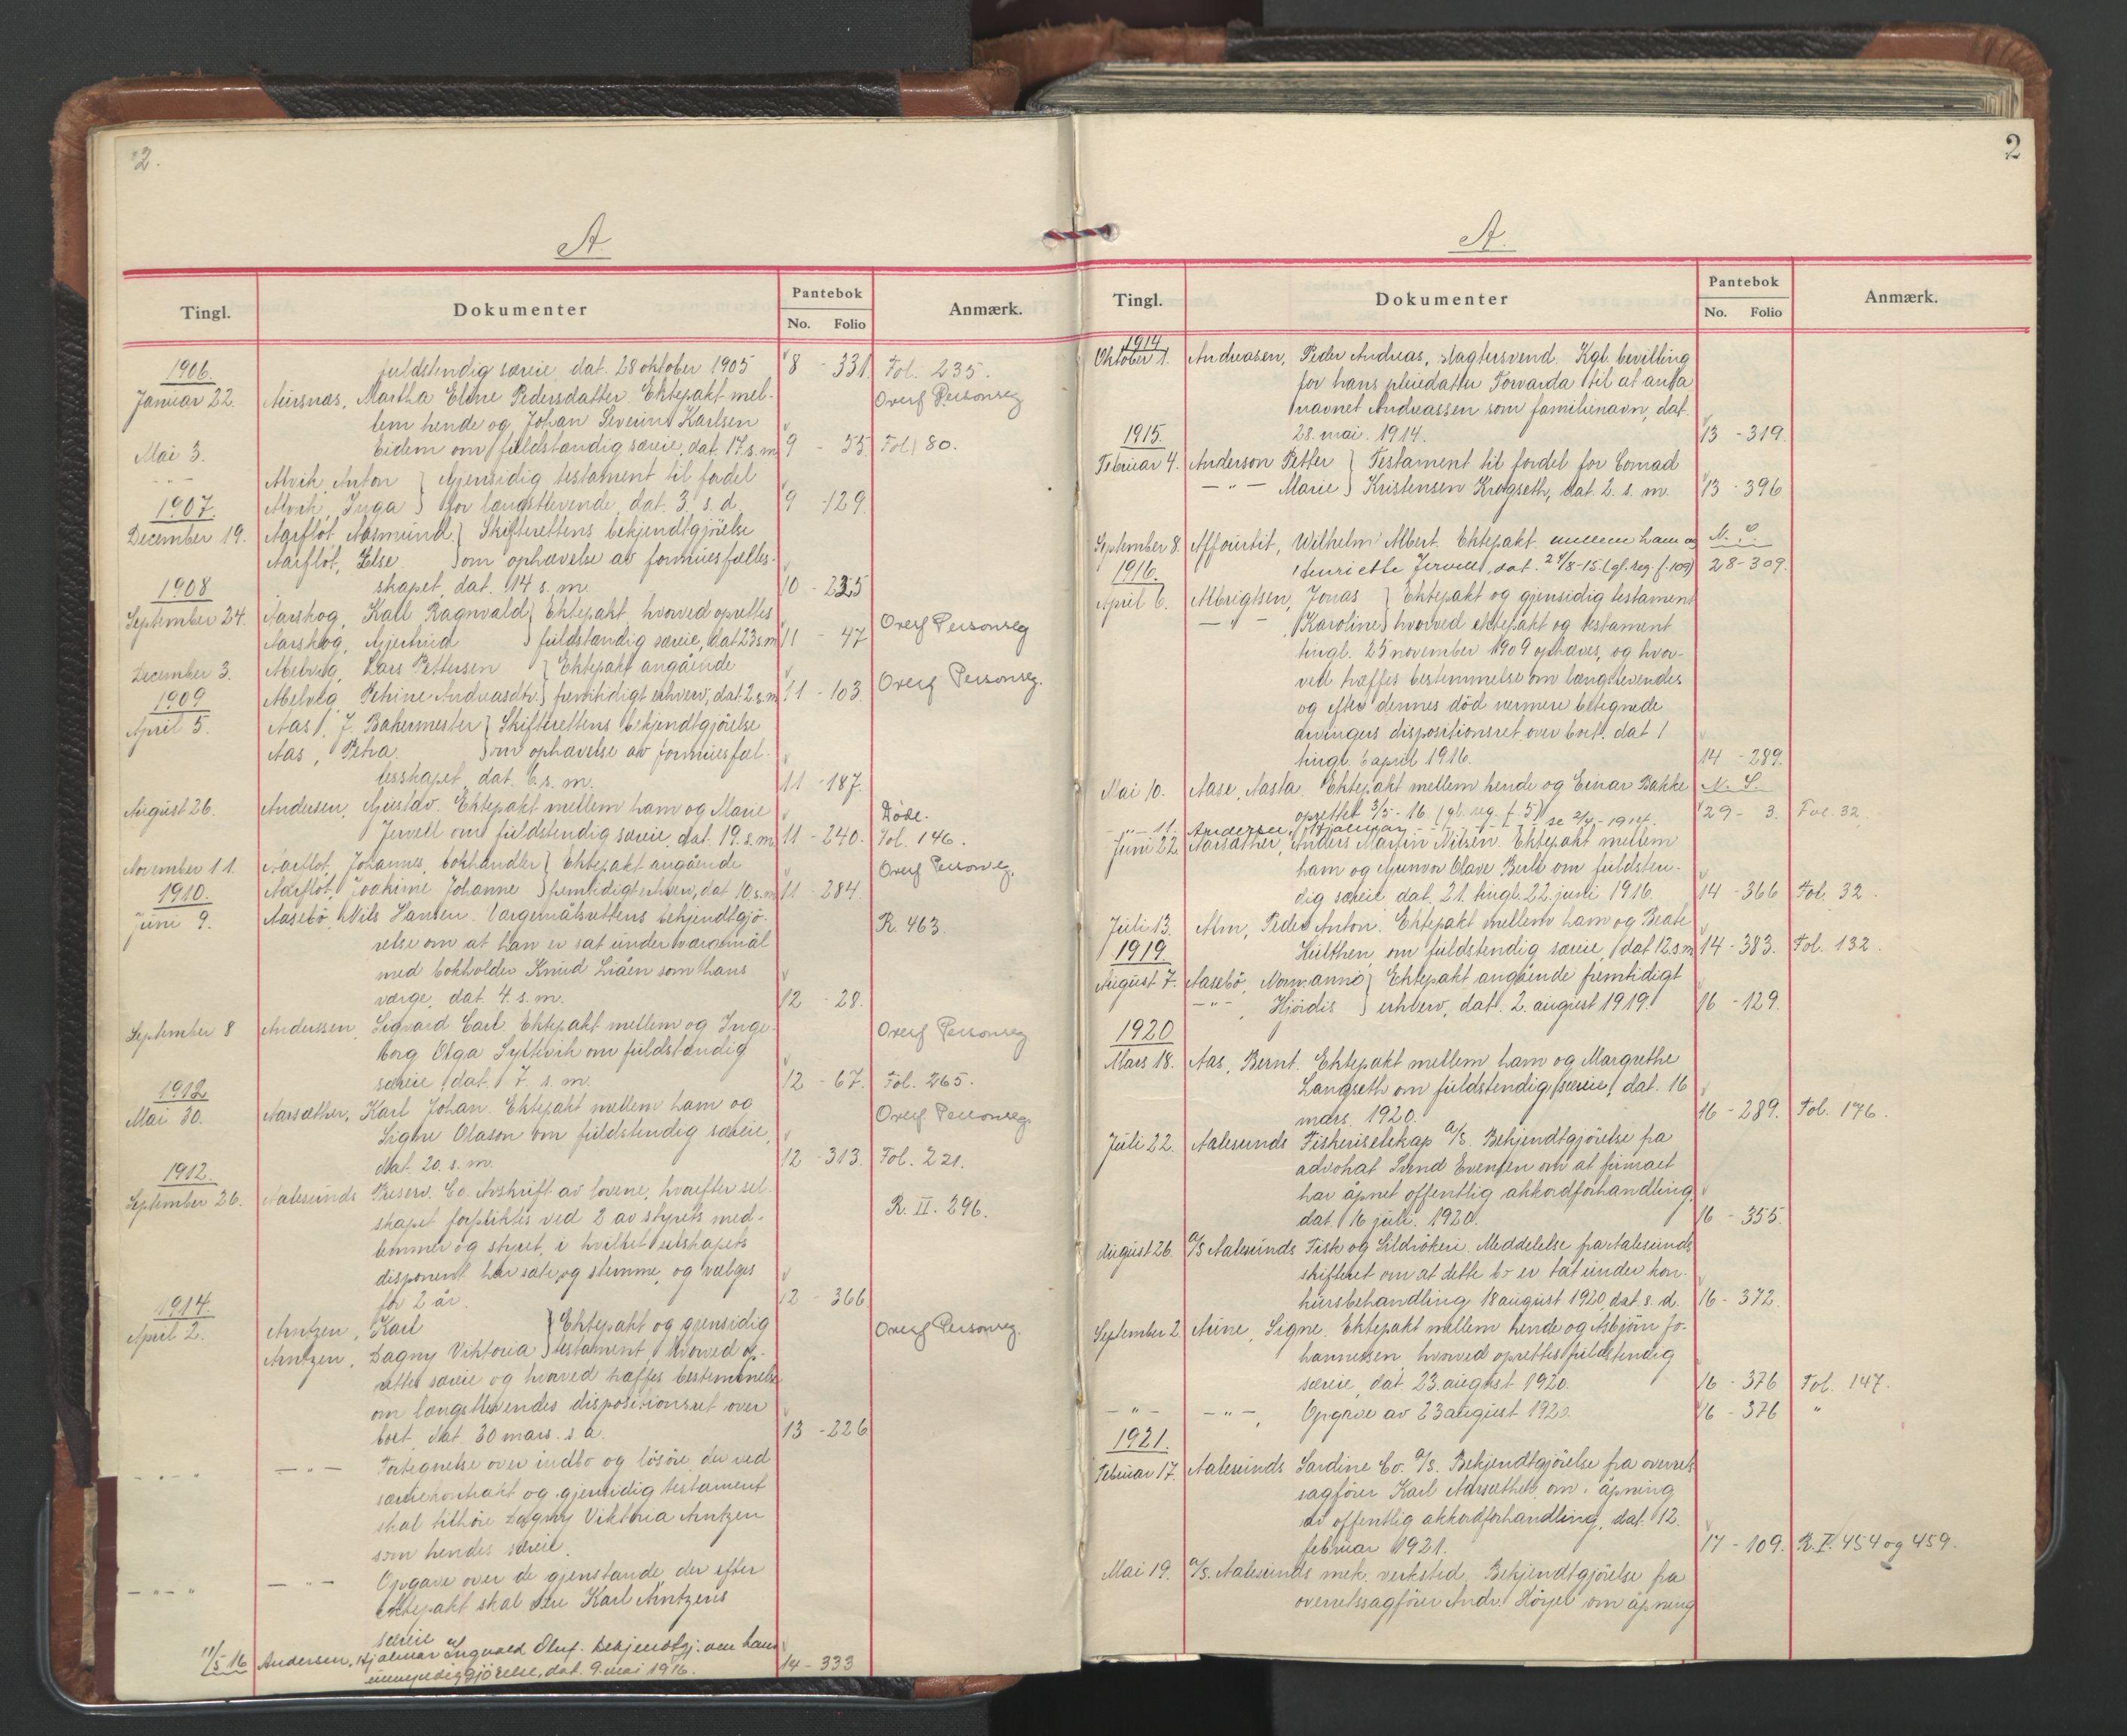 2.
A.
Tingl. Dokumenter Pantebok No. Folio Anmærk.
1906. fuldstendig særeie, dat. 28 oktober 1905 8 - 331. Fol. 235.
Januar 22. Aursnæs, Martha Eline Pedersdatter. Ektepakt mel- Overf Personreg
lem hende og Johan Severin Karlsen
Mai 3. Eidem om fuldstændig særeie, dat. 17. s. m. 9 - 35 Fol. 80.
- " - Alvik, Anton } Gjensidig testament til fordel
1907. Alvik, Inga } for længstlevende, dat. 3. s. d. 9 - 129.
December 19. Aarflot, Aasmund. } Skifterettens bekjendtgjörelse
Aarflot, Else. } om ophævelse av formuesfælles-
1908 skapet, dat. 14 s. m. 10 - 235
September 24. Aarskog, Karl Ragnvald } Ektepakt hvorved oprettes Overf Personreg
Aarskog, Gjertrud } fuldstændig særeie, dat 23 s. m. 11 - 47
December 3. Abelvig, Lars Pettersen } Ektepakt angående Overf Personreg.
1909 Abelvig, Petrine Andreasdtr. } fremtidigt erhverv, dat. 2. s. m. 11 - 103.
April 5. Aas, J. Bakermester } Skifterettens bekjendtgjörelse
Aas, Petra. } om ophævelse av formuesfæl-
lesskapet, dat. 6. s. m. 11 - 187.
August 26. Andersen, Gustav. Ektepakt mellem ham og Marie Döde.
Jervell om fuldstendig særeie, dat. 19. s. m. 11 - 240. Fol. 146.
November 11. Aarflot, Johannes, bokhandler } Ektepakt angående Overf Personreg.
1910. Aarflot, Joakime Johanne } fremtidigt erhverv, dat. 10. s. m. 11 - 284.
Juni 9. Aasebö, Nils Hansen. Værgemålsrettens bekjendtgjö- R. 463.
relse om at han er sat under værgemål
med bokholder Knud Liåen som hans
værge, dat. 4. s. m. 12 - 28.
September 8 Anderssen, Sigvard Carl. Ektepakt mellem og Inge- Overf Personreg
borg Olga Syltevik om fuldstændig
særeie, dat. 7. s. m. 12 - 67. Fol. 265.
1912
Mai 30. Aarsæther, Karl Johan. Ektepakt mellem ham og Overf Personreg.
Signe Olason om fuldstendig særeie,
dat. 20. s. m. 12 - 313. Fol. 221.
1912.
September 26. Aalesunds Preserv. Co. Avskrift av lovene, hvorefter sel- R. II. 296.
skapet forpliktes ved 2 av styrets med-
lemmer og styret, i hvilket selskapets
disponent har sæte og stemme, og vælges
for 2 år. 12 - 366.
1914.
April 2. Arntzen, Karl } Ektepakt og gjensidig Overf Personreg.
Arntzen, Dagny Viktoria } testament hvorved op-
rettes særeie og hvorved træffes bestemmelse
om længstlevendes dispositionsret over
boet, dat. 30 mars. s a. 13 - 226
- " - - " - Fortegnelse over indbo og lösöre, der ved
særeiekontrakt og gjensidig testament
skal tilhöre Dagny Viktoria Arntzen
som hendes særeie.
- " - - " - Opgave over de gjenstande der efter
Ektepakt skal være Karl Arntzens
særeie
11/5 16 Andersen, Hjalmar Ingvald Oluf. Bekjendtgj. om hans
umyndiggjörelse, dat. 9. mai 1916. 14 - 333
2
A.
Tingl. Dokumenter Pantebok No. Folio Anmærk.
1914
Oktober 1. Andreasen, Peder Andreas, slagtersvend. Kgl. bevilling
for hans pleiedatter Torvarda til at anta
navnet Andreassen som familienavn, dat.
1915. 28. mai. 1914. 13 - 319.
Februar 4. Anderson Petter } Testament til fordel for Conrad
- " - Marie } Kristensen Krogseth, dat. 2. s. m. 13 - 396
September 8. Affourtit, Wilhelm Albert. Ektepakt mellem ham og N. S.
1916. Henriette Jervell, dat. 24/8-15. (gl. reg. f. 109) 28 - 309.
April 6. Albrigtsen, Jonas } Ektepakt og gjensidig testament
- " - Karoline } hvorved ektepakt og testament
tingl. 25 november 1909 ophæves, og hvor-
ved træffes bestemmelse om længstlevendes
og efter dennes död nærmere betegnede
arvingers dispositionsret over boet. dat 1
tingl. 6 april 1916. 14 - 289.
Mai 10. Aase, Aasta. Ektepakt mellem hende og Einar Bakke N. S.
oprettet 3/5 - 16. (gl. reg. f. 5) 29 - 3. Fol. 32.
- " - 11. Andersen, Hjalmar - - - - - - - se 2/4 - 1914.
Juni 22. Aarsæther, Anders Martin Nilsen. Ektepakt mellem
ham og Gunvor Olave Berli om fuldsten-
dig særeie dat. 21. tingl. 22. juni 1916. 14 - 366 Fol. 32.
Juli 13. Alm, Peder Anton. Ektepakt mellem ham og Beate
1919. Hulthen, om fuldstendig særeie, dat 12. s. m. 14 - 383. Fol. 132.
August 7. Aasebö, Normanno } Ektepakt angående fremtidigt
- " -, Hjördis } erhverv, dat. 2. august 1919. 16 - 129.
1920
Mars 18. Aas, Bernt. Ektepakt mellem ham og Margrethe
Langseth om fuldstendig særeie, dat. 16
mars. 1920. 16 - 289. Fol. 146.
Juli 22. Aalesunds Fiskeriselskap A/S. Bekjendtgjörelse fra
advokat Svend Evensen om at firmaet
har åpnet offentlig akkordforhandling,
dat. 16 juli. 1920. 16 - 355.
August 26. A/S Aalesunds Fisk og Sildrökeri. Meddelelse fra Aalesunds
skifteret om at dette bo er tat under kon-
kursbehandling 18 august 1920, dat. s. d. 16 - 372.
September 2. Arine, Signe. Ektepakt mellem hende og Asbjörn Jo-
hannessen, hvorved oprettes fuldstendig
særeie, dat. 23. august 1920. 16 - 376 Fol. 147.
- " - - " -, Opgave av 23 august 1920. 16 - 376 "
1921.
Februar 17. Aalesunds Sardine Co. A/S. Bekjendtgjörelse fra overrets-
sagförer Karl Aarsæther, om åpning
av offentlig akkordforhandling, dat. 12.
februar 1921. 17 - 109. R. I. 454 og 459.
Mai 19. A/S. Aalesunds mek. verksted. Bekjendtgjörelse fra
overretssagförer Andr. Hörjel om åpning